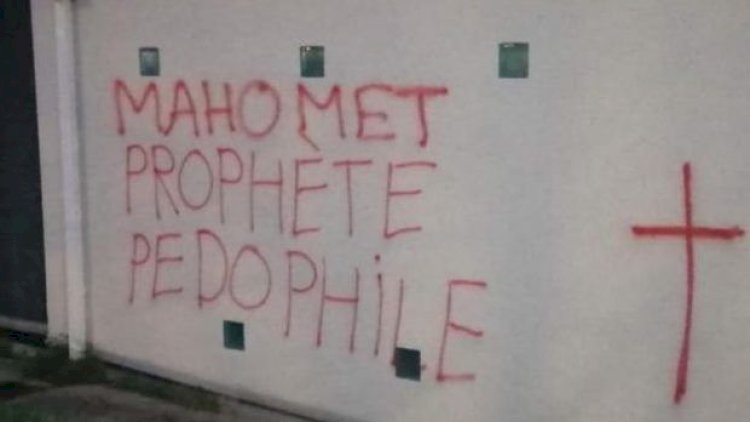 MAHOMET
PROPHÈTE
PEDOPHiLE